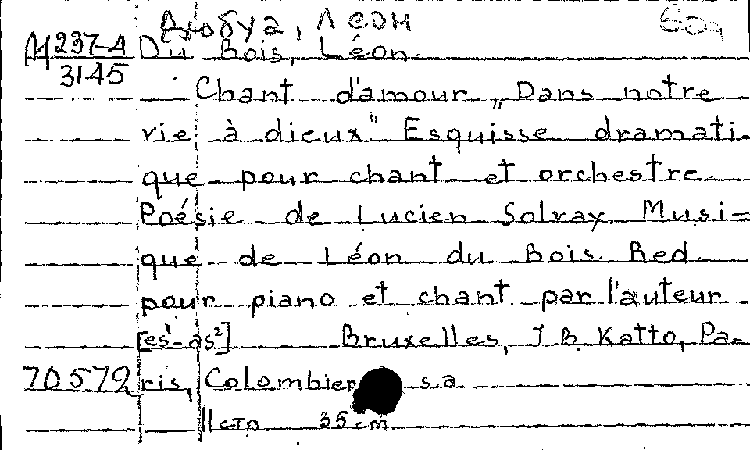 Дюбуа, Леон
M 237-A
3145
Du Bois, Léon
Chant d'amour „Dans notre
vie à dieux" Esquisse dramati-
que pour chant et orchestre
Poésie de Lucien Solvay Musi-
que de Léon du Bois Red.
pour piano et chant par l'auteur
[es¹-as²] Bruxelles, J. B. Katto, Pa-
70572 ris, Colombier s.a.
11 стр 35 cm